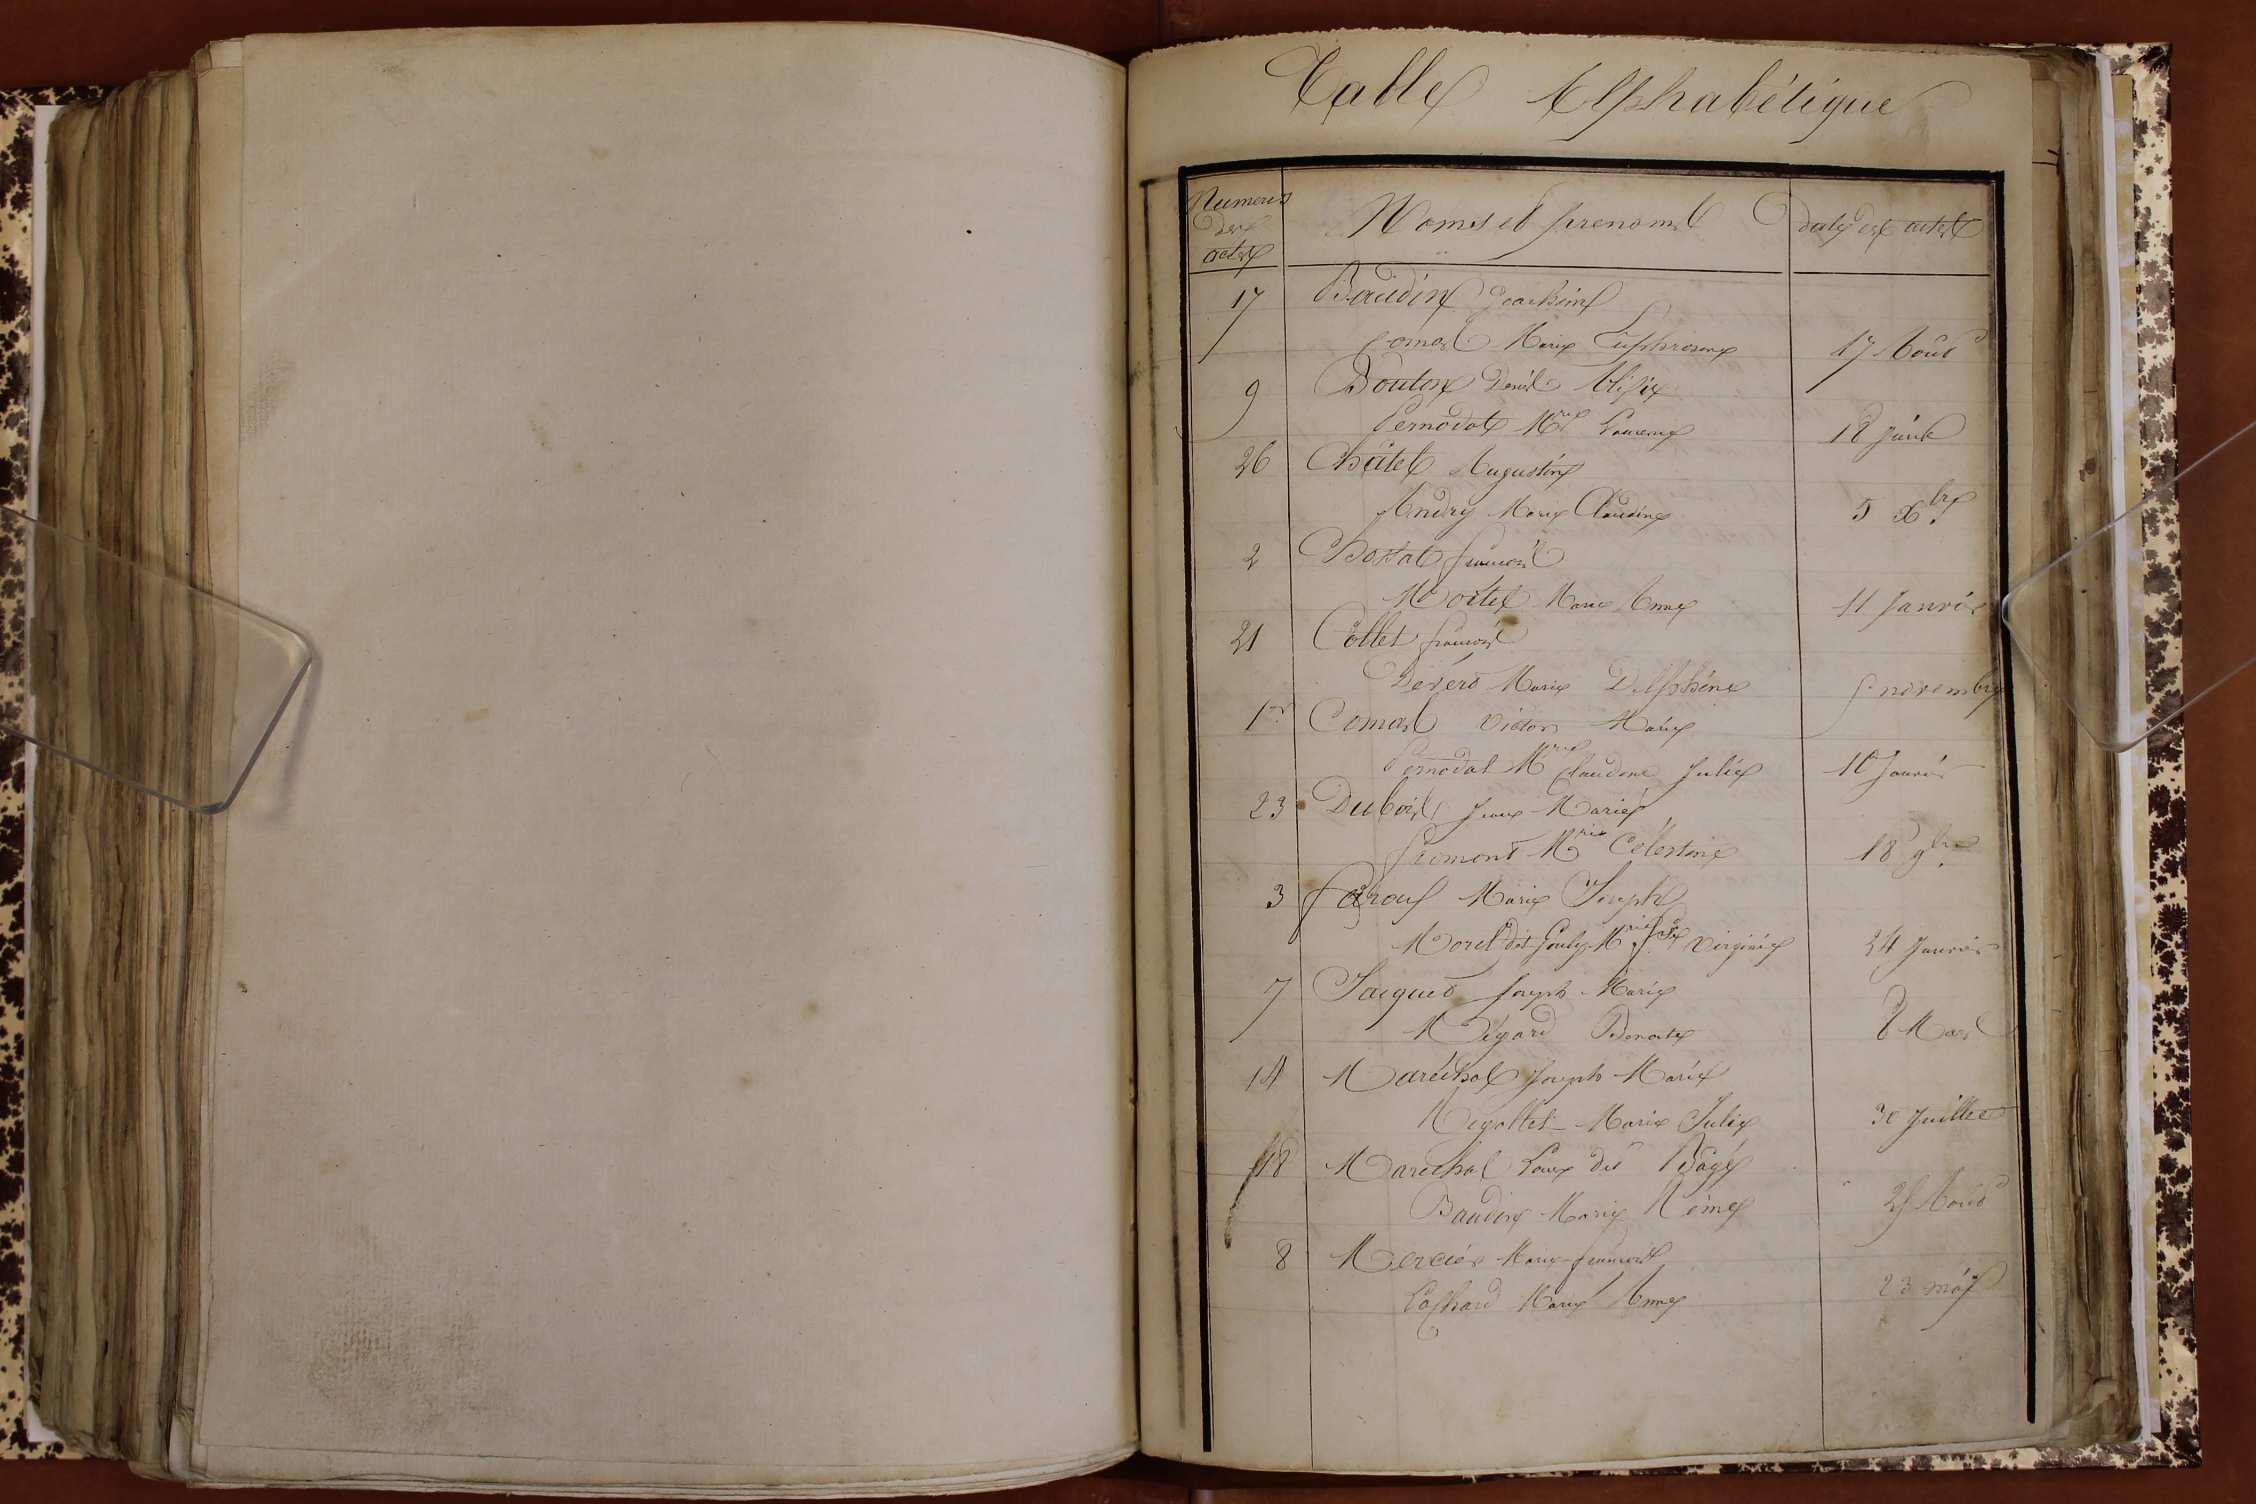 Table Alphabétique
Numeros
des
actes
Noms et prenoms
dates des actes
17 Baudin Joachim
Comas Marie Euphrosine 17 Aout
9 Bouton Denis Elisée
Pernodat Mrie Laurence 18 Juin
26 Châtel Augustin
Andry Marie Claudine 5 Xbre
2 Bossat françois
Mortel Marie Anne 11 Janvier
21 Collet françois
Marie Delphine novembre
1er Comas Victor Marie
Pernodat Mrie Claudine Julie 10 Janvier
23 Dubois Jean Marie
fromont Mrie Célestine 18 9bre
3 Marie Joseph
Morel dit Mrie Virginie 24 Janvier
7 Jacquet Joseph Marie
Mégard Benoite 8 Mars
14 Maréchal Joseph Marie
Rigollet Marie Julie 30 Juillet
18 Maréchal dit Bagé
Baudin Marie Aimée Aout
8 Mercier Marie françois
Marie Anne 23 mai